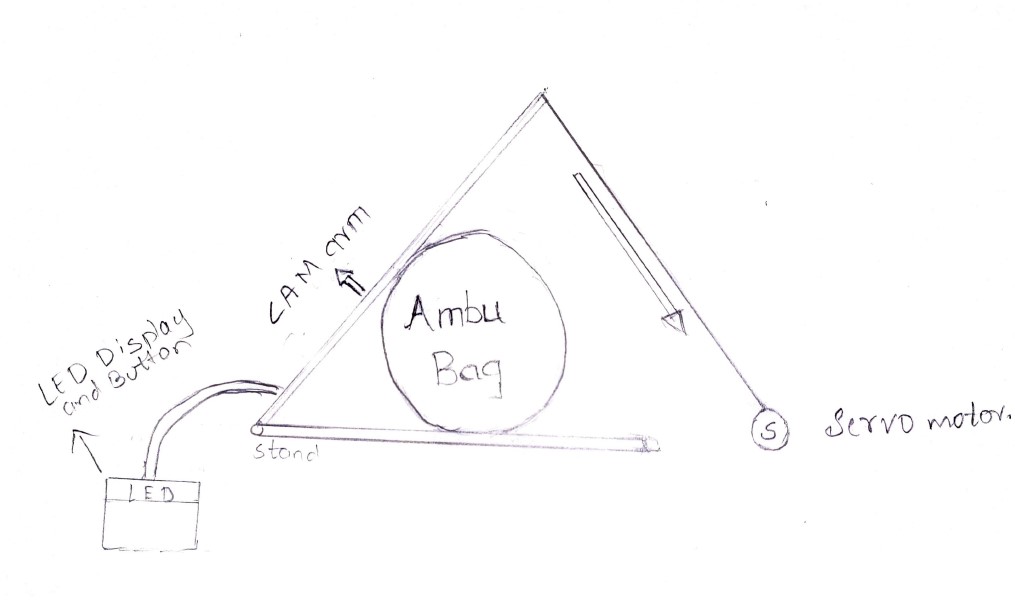 CAM arm
Ambu
Bag
LED Display
and Button
stand
S
Servo motor.
LED